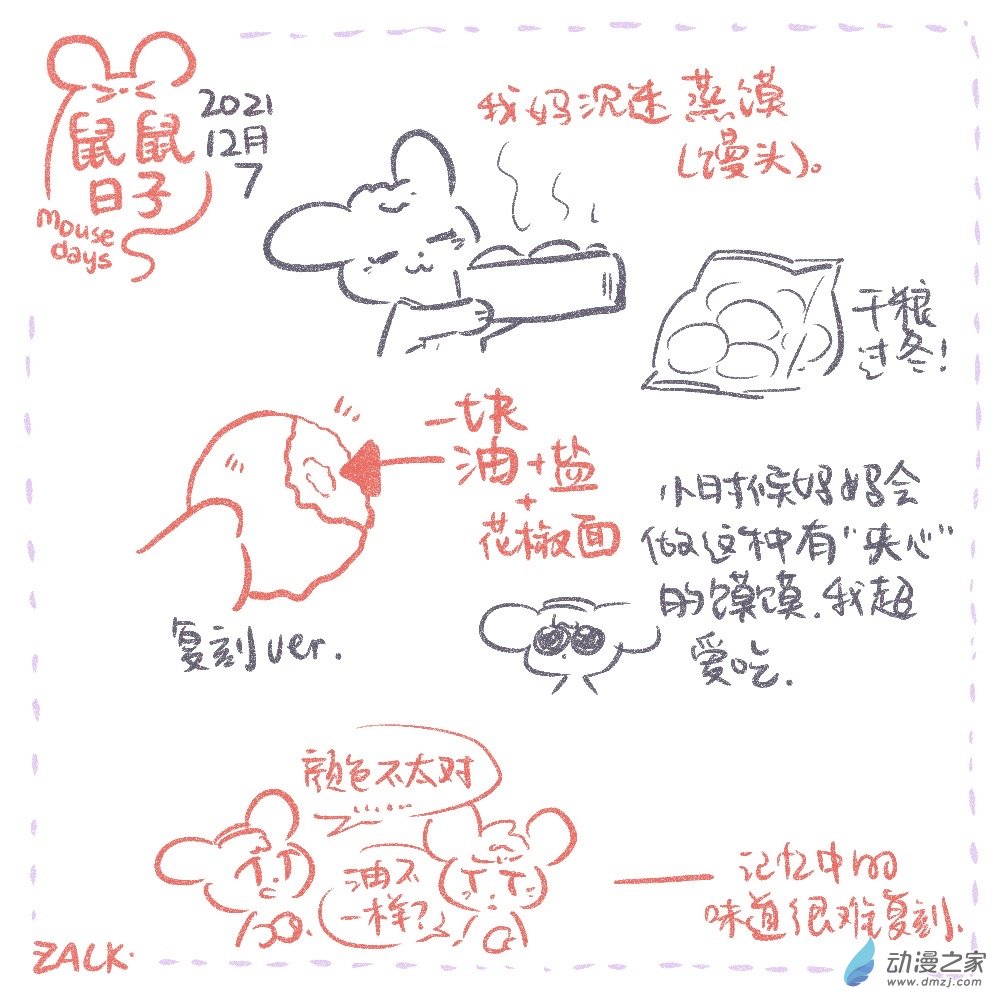 鼠鼠
日子
mouse
days
2021
12月
7
我妈沉迷蒸馍
(馒头)。
干粮
过冬!
一块
油+盐
+
花椒面
复刻ver.
小时候妈妈会
做这种有“夹心”
的馍馍.我超
爱吃.
颜色不太对
......
油不
一样?
记忆中的
味道很难复刻.
ZALK.
动漫之家
www.dmzj.com